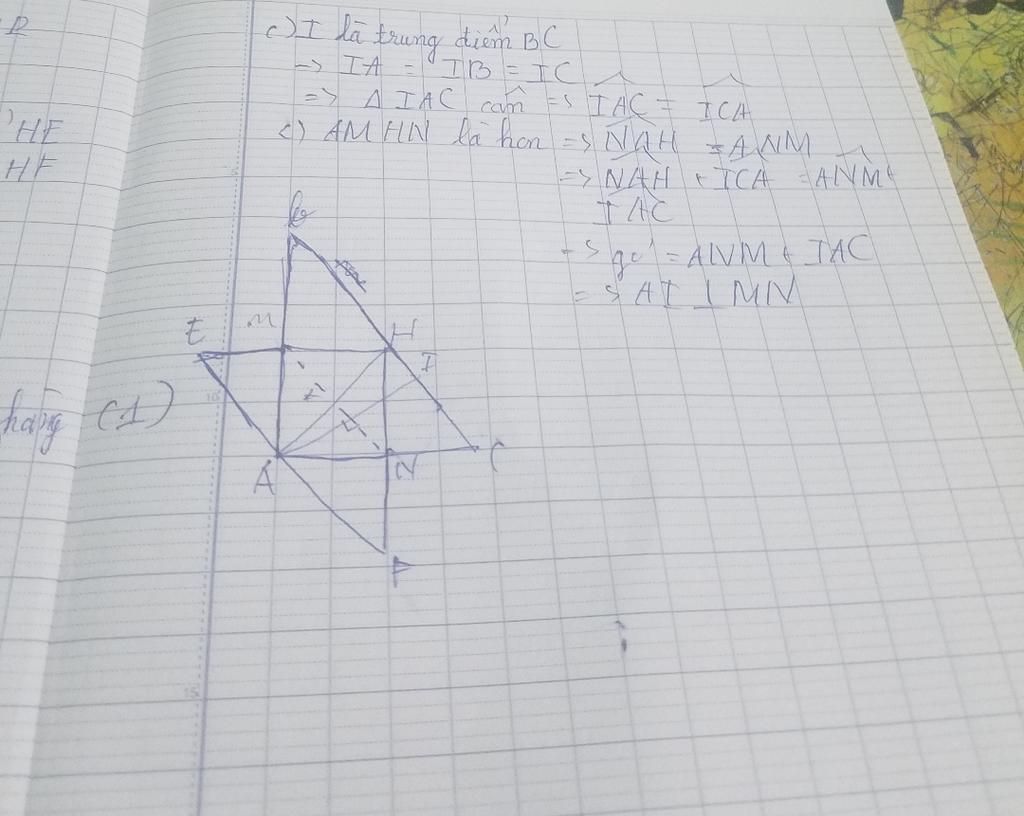 R
HE
HF
hàng (1)
c) I là trung điểm BC
=> IA = IB = IC
=> Δ IAC cân => IAC = ICA
c) AMHN là hcn => NAH = ANM
=> NAH + ICA = ANM +
IAC
=> 90° = ANM + IAC
=> AI ⊥ MN
B
E M H
I
A N C
F